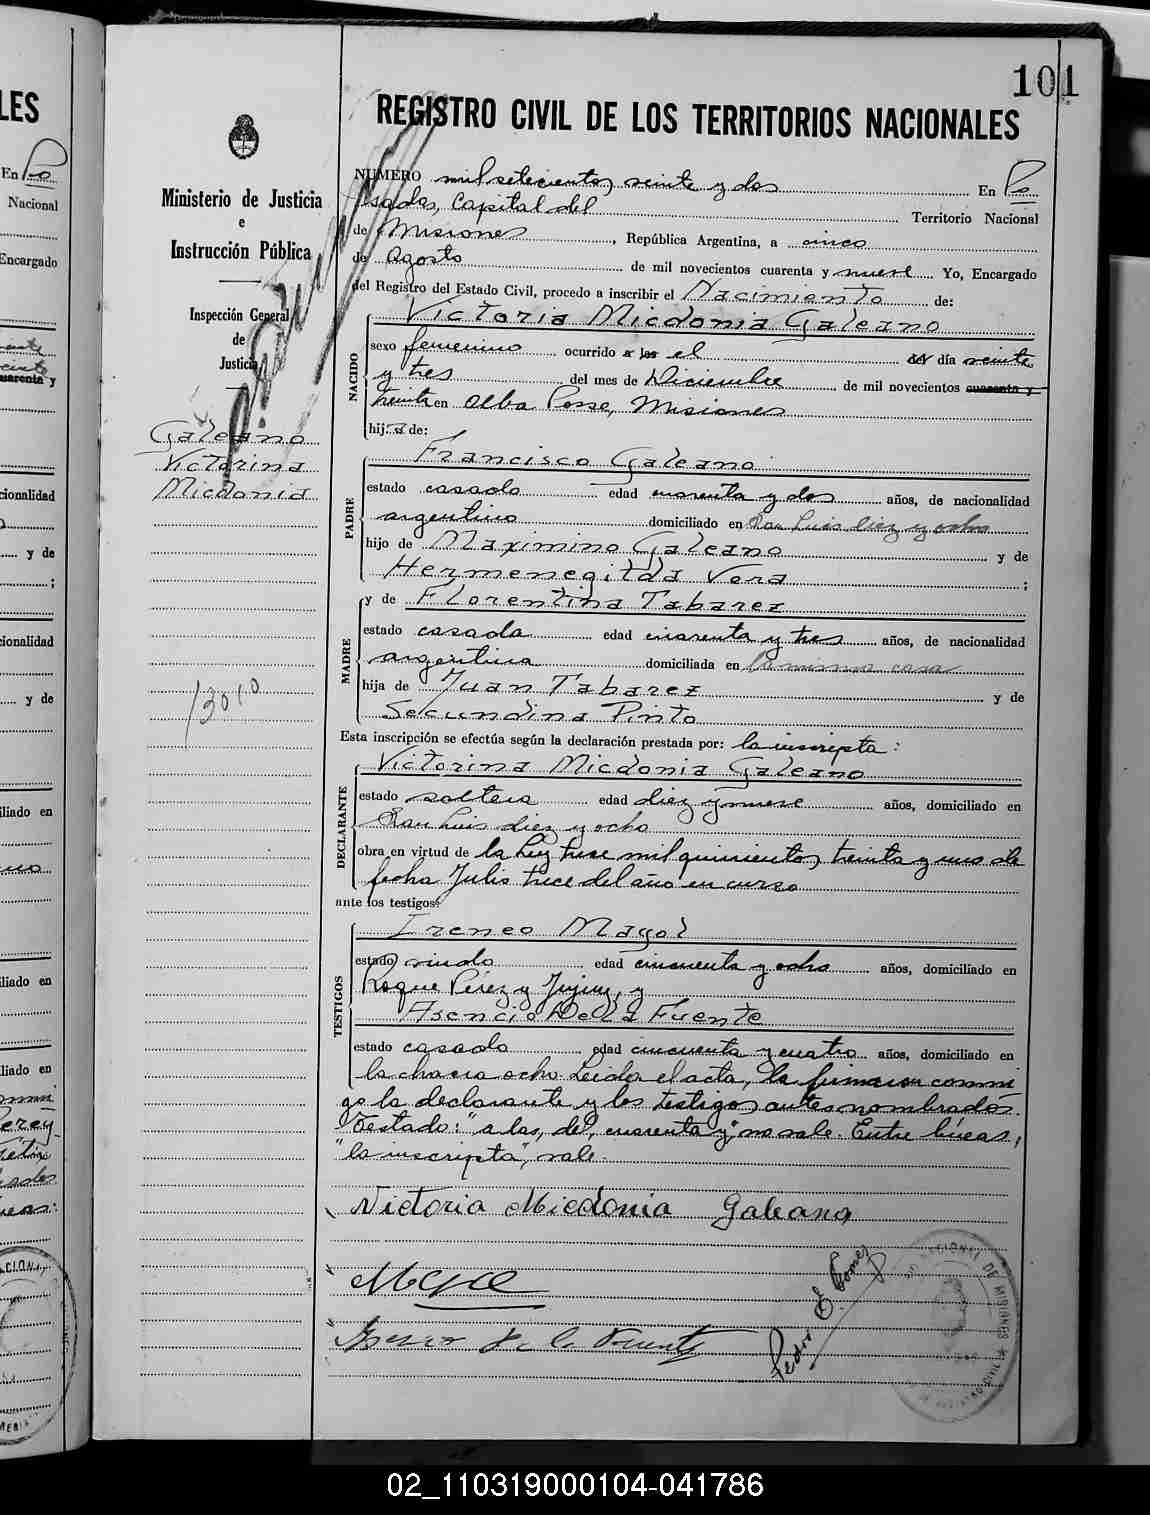 101
REGISTRO CIVIL DE LOS TERRITORIOS NACIONALES
Ministerio de Justicia
e
Instrucción Pública
Inspección General
de
Justicia
Galeano
Victorina
Micdonia
13010
NUMERO mil setecientos veinte y dos En Po
sadas, Capital del Territorio Nacional
de Misiones, República Argentina, a cinco
de Agosto de mil novecientos cuarenta y nueve Yo, Encargado
del Registro del Estado Civil, procedo a inscribir el Nacimiento de:
Victoria Micdonia Galeano
NACIDO
sexo femenino ocurrido a las el del día veinte
y tres del mes de Diciembre de mil novecientos cuarenta y
treinta en Alba Posse, Misiones
hija de:
Francisco Galeano
PADRE
estado casado edad cuarenta y dos años, de nacionalidad
argentino domiciliado en San Luis diez y ocho
hijo de Maximino Galeano y de
Hermenegilda Vera ;
y de Florentina Tabarez
MADRE
estado casada edad cuarenta y tres años, de nacionalidad
argentina domiciliada en la misma casa
hija de Juan Tabarez y de
Secundina Pinto
Esta inscripción se efectúa según la declaración prestada por: la inscripta:
Victorina Micdonia Galeano
DECLARANTE
estado soltera edad diez y nueve años, domiciliado en
San Luis diez y ocho
obra en virtud de la Ley trece mil quinientos treinta y uno de
fecha Julio trece del año en curso
ante los testigos:
Ireneo Mayol
TESTIGOS
estado viudo edad cincuenta y ocho años, domiciliado en
Roque Pérez y Jujuy, y
Asencio De La Fuente
estado casado edad cincuenta y cuatro años, domiciliado en
la chacra ocho. Leida el acta, la firmaron conmi
go la declarante y los testigos antes nombrados.
Testado: "a las, del, cuarenta y", no vale. Entre líneas,
"la inscripta", vale.
Victoria Micdonia Galeano
Pedro E Gomez
02_110319000104-041786